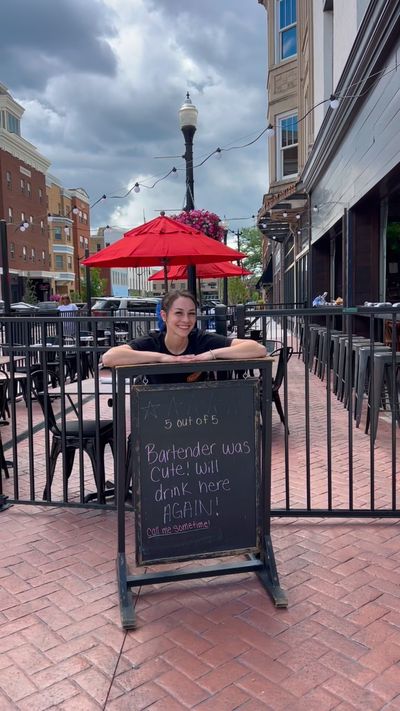 5 out of 5
Bartender was
Cute! Will
drink here
AGAIN!
call me sometime!